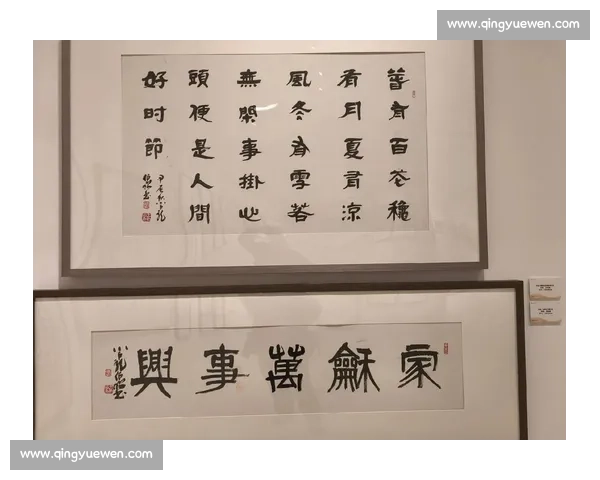 www.qingyuewen.com
萅有百花穐
有月夏有涼
風冬有雪若
無閑事掛心
頭便是人間
好时節
家龢萬事興
www.qingyuewen.com